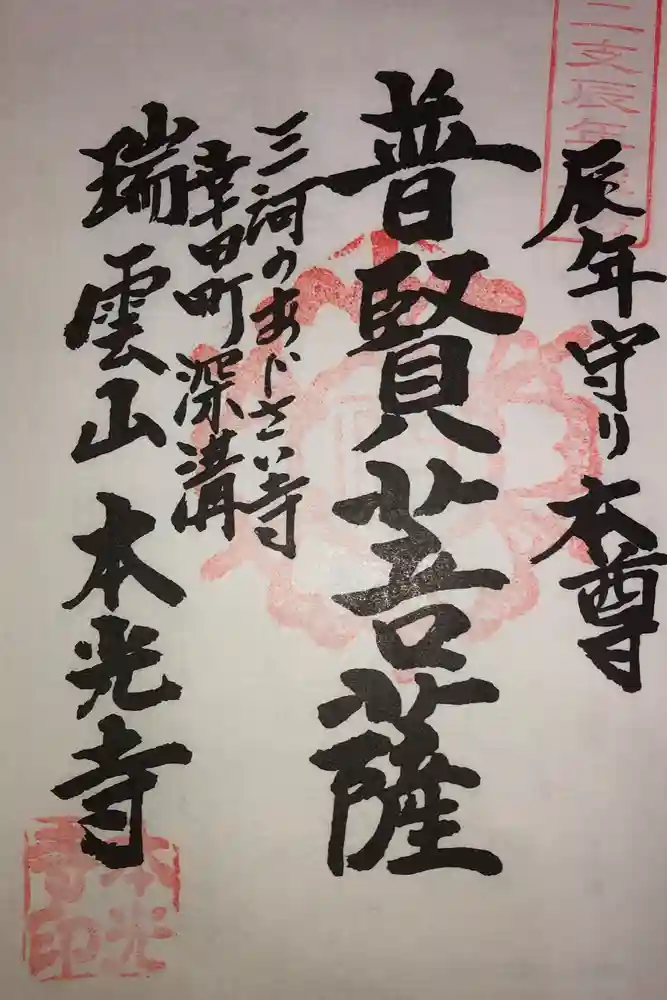 二支辰年
辰年守り本尊
普賢菩薩
三河のあじさい寺
幸田町深溝
瑞雲山 本光寺
本光
寺印